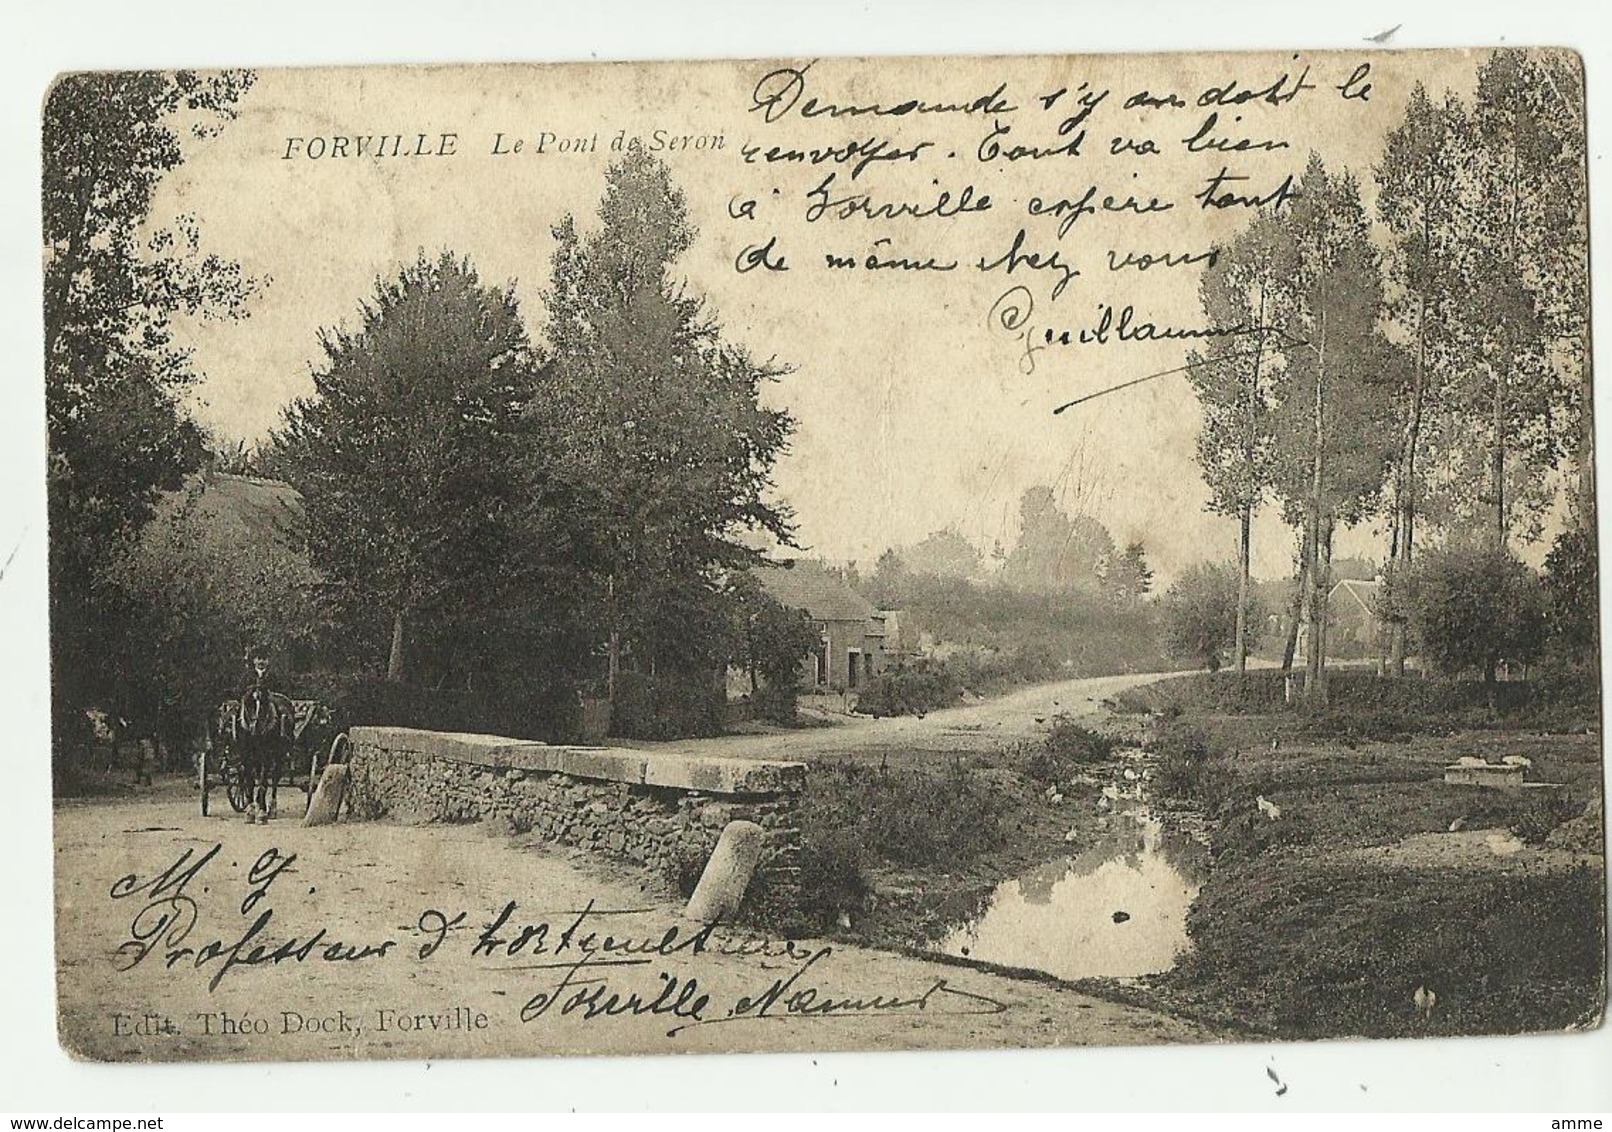 FORVILLE Le Pont de Seron
Demande s'y on doit le
renvoyer. Tout va bien
à Forville espère tant
de même chez vous
Guillaume
M. G.
Professeur d'horticulture
Forville Namur
Edit. Théo Dock, Forville
www.delcampe.net
amme